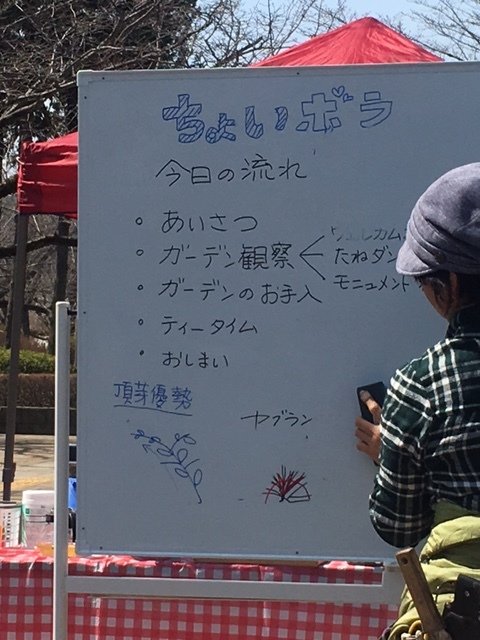 ちょいボラ
今日の流れ
・あいさつ
・ガーデン観察
ウェルカム
たねダン
モニュメント
・ガーデンのお手入
・ティータイム
・おしまい
頂芽優勢
ヤブラン